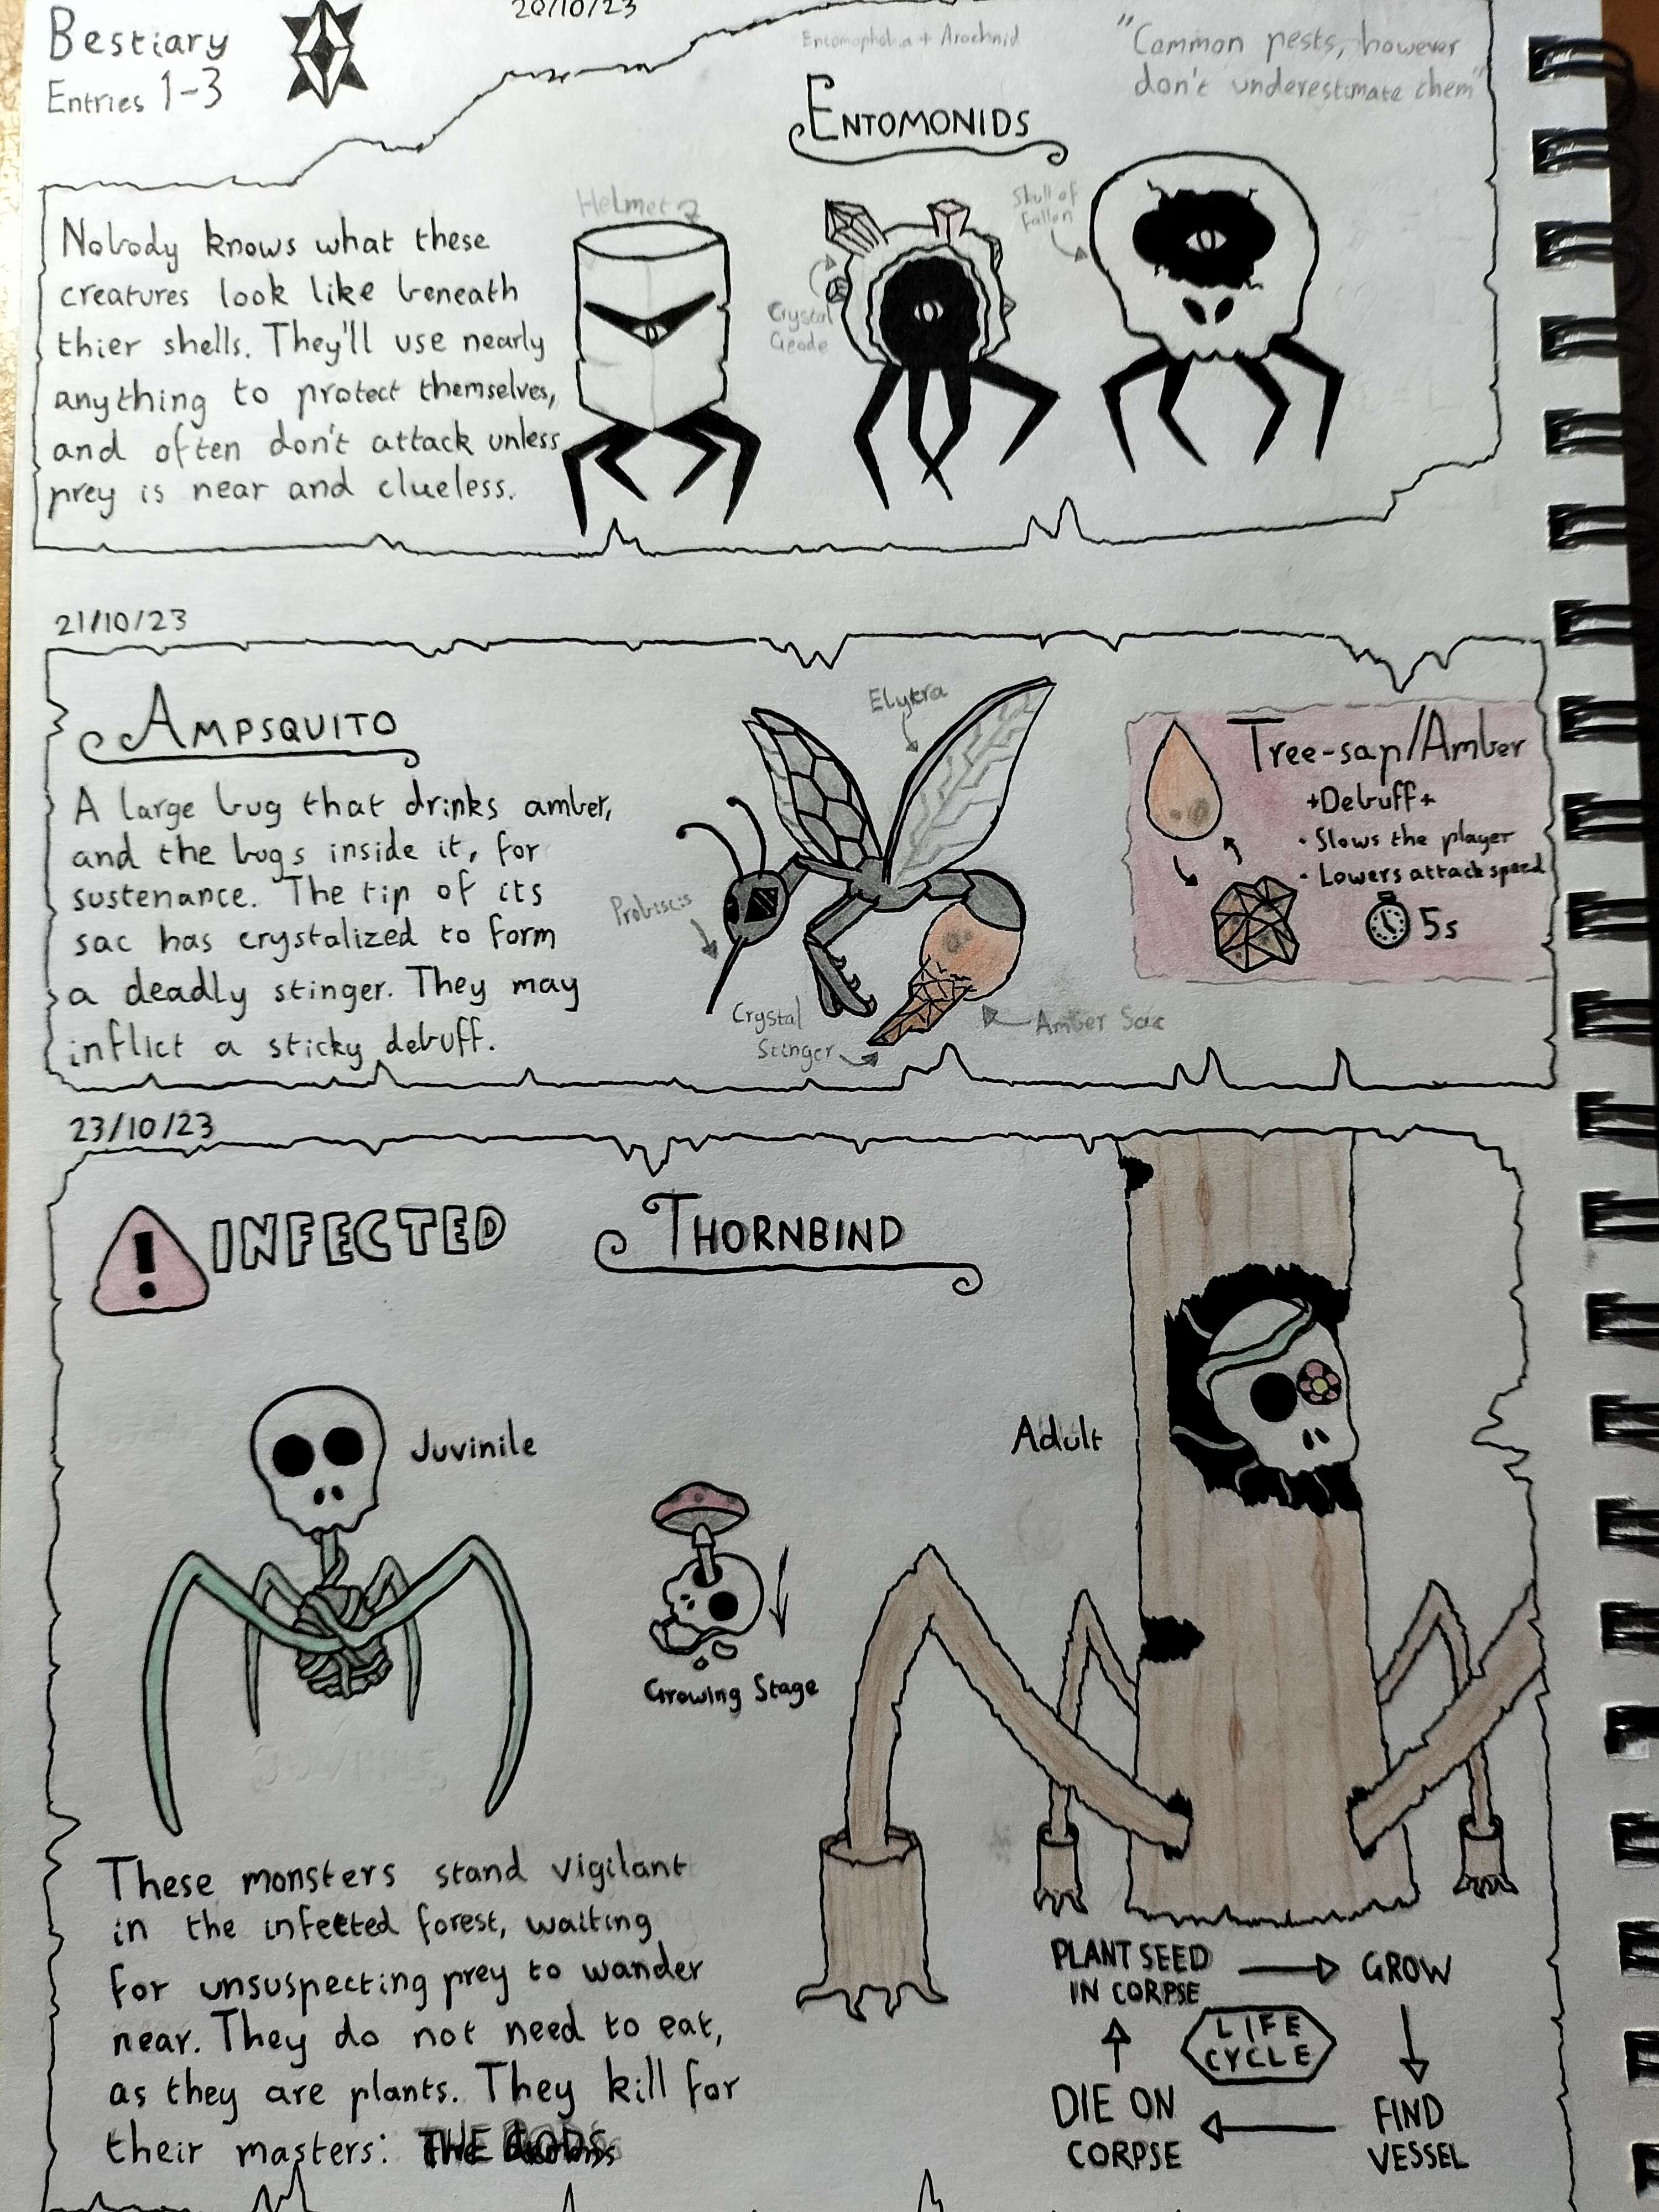 Bestiary
Entries 1-3
20/10/23
Entomophobia + Arachnid
"Common pests, however
don't underestimate them"
ENTOMONIDS
Nobody knows what these
creatures look like beneath
thier shells. They'll use nearly
anything to protect themselves,
and often don't attack unless
prey is near and clueless.
Helmet
Crystal
Geode
Skull of
fallen
21/10/23
AMPSQUITO
A large bug that drinks amber,
and the bugs inside it, for
sustenance. The tip of its
sac has crystalized to form
a deadly stinger. They may
inflict a sticky debuff.
Elytra
Probiscis
Crystal
Stinger
Amber Sac
Tree-sap/Amber
+Debuff+
• Slows the player
• Lowers attack speed
5s
23/10/23
! INFECTED
THORNBIND
Juvinile
Growing Stage
Adult
These monsters stand vigilant
in the infected forest, waiting
for unsuspecting prey to wander
near. They do not need to eat,
as they are plants. They kill for
their masters: THE GODS
PLANT SEED
IN CORPSE
GROW
LIFE
CYCLE
DIE ON
CORPSE
FIND
VESSEL